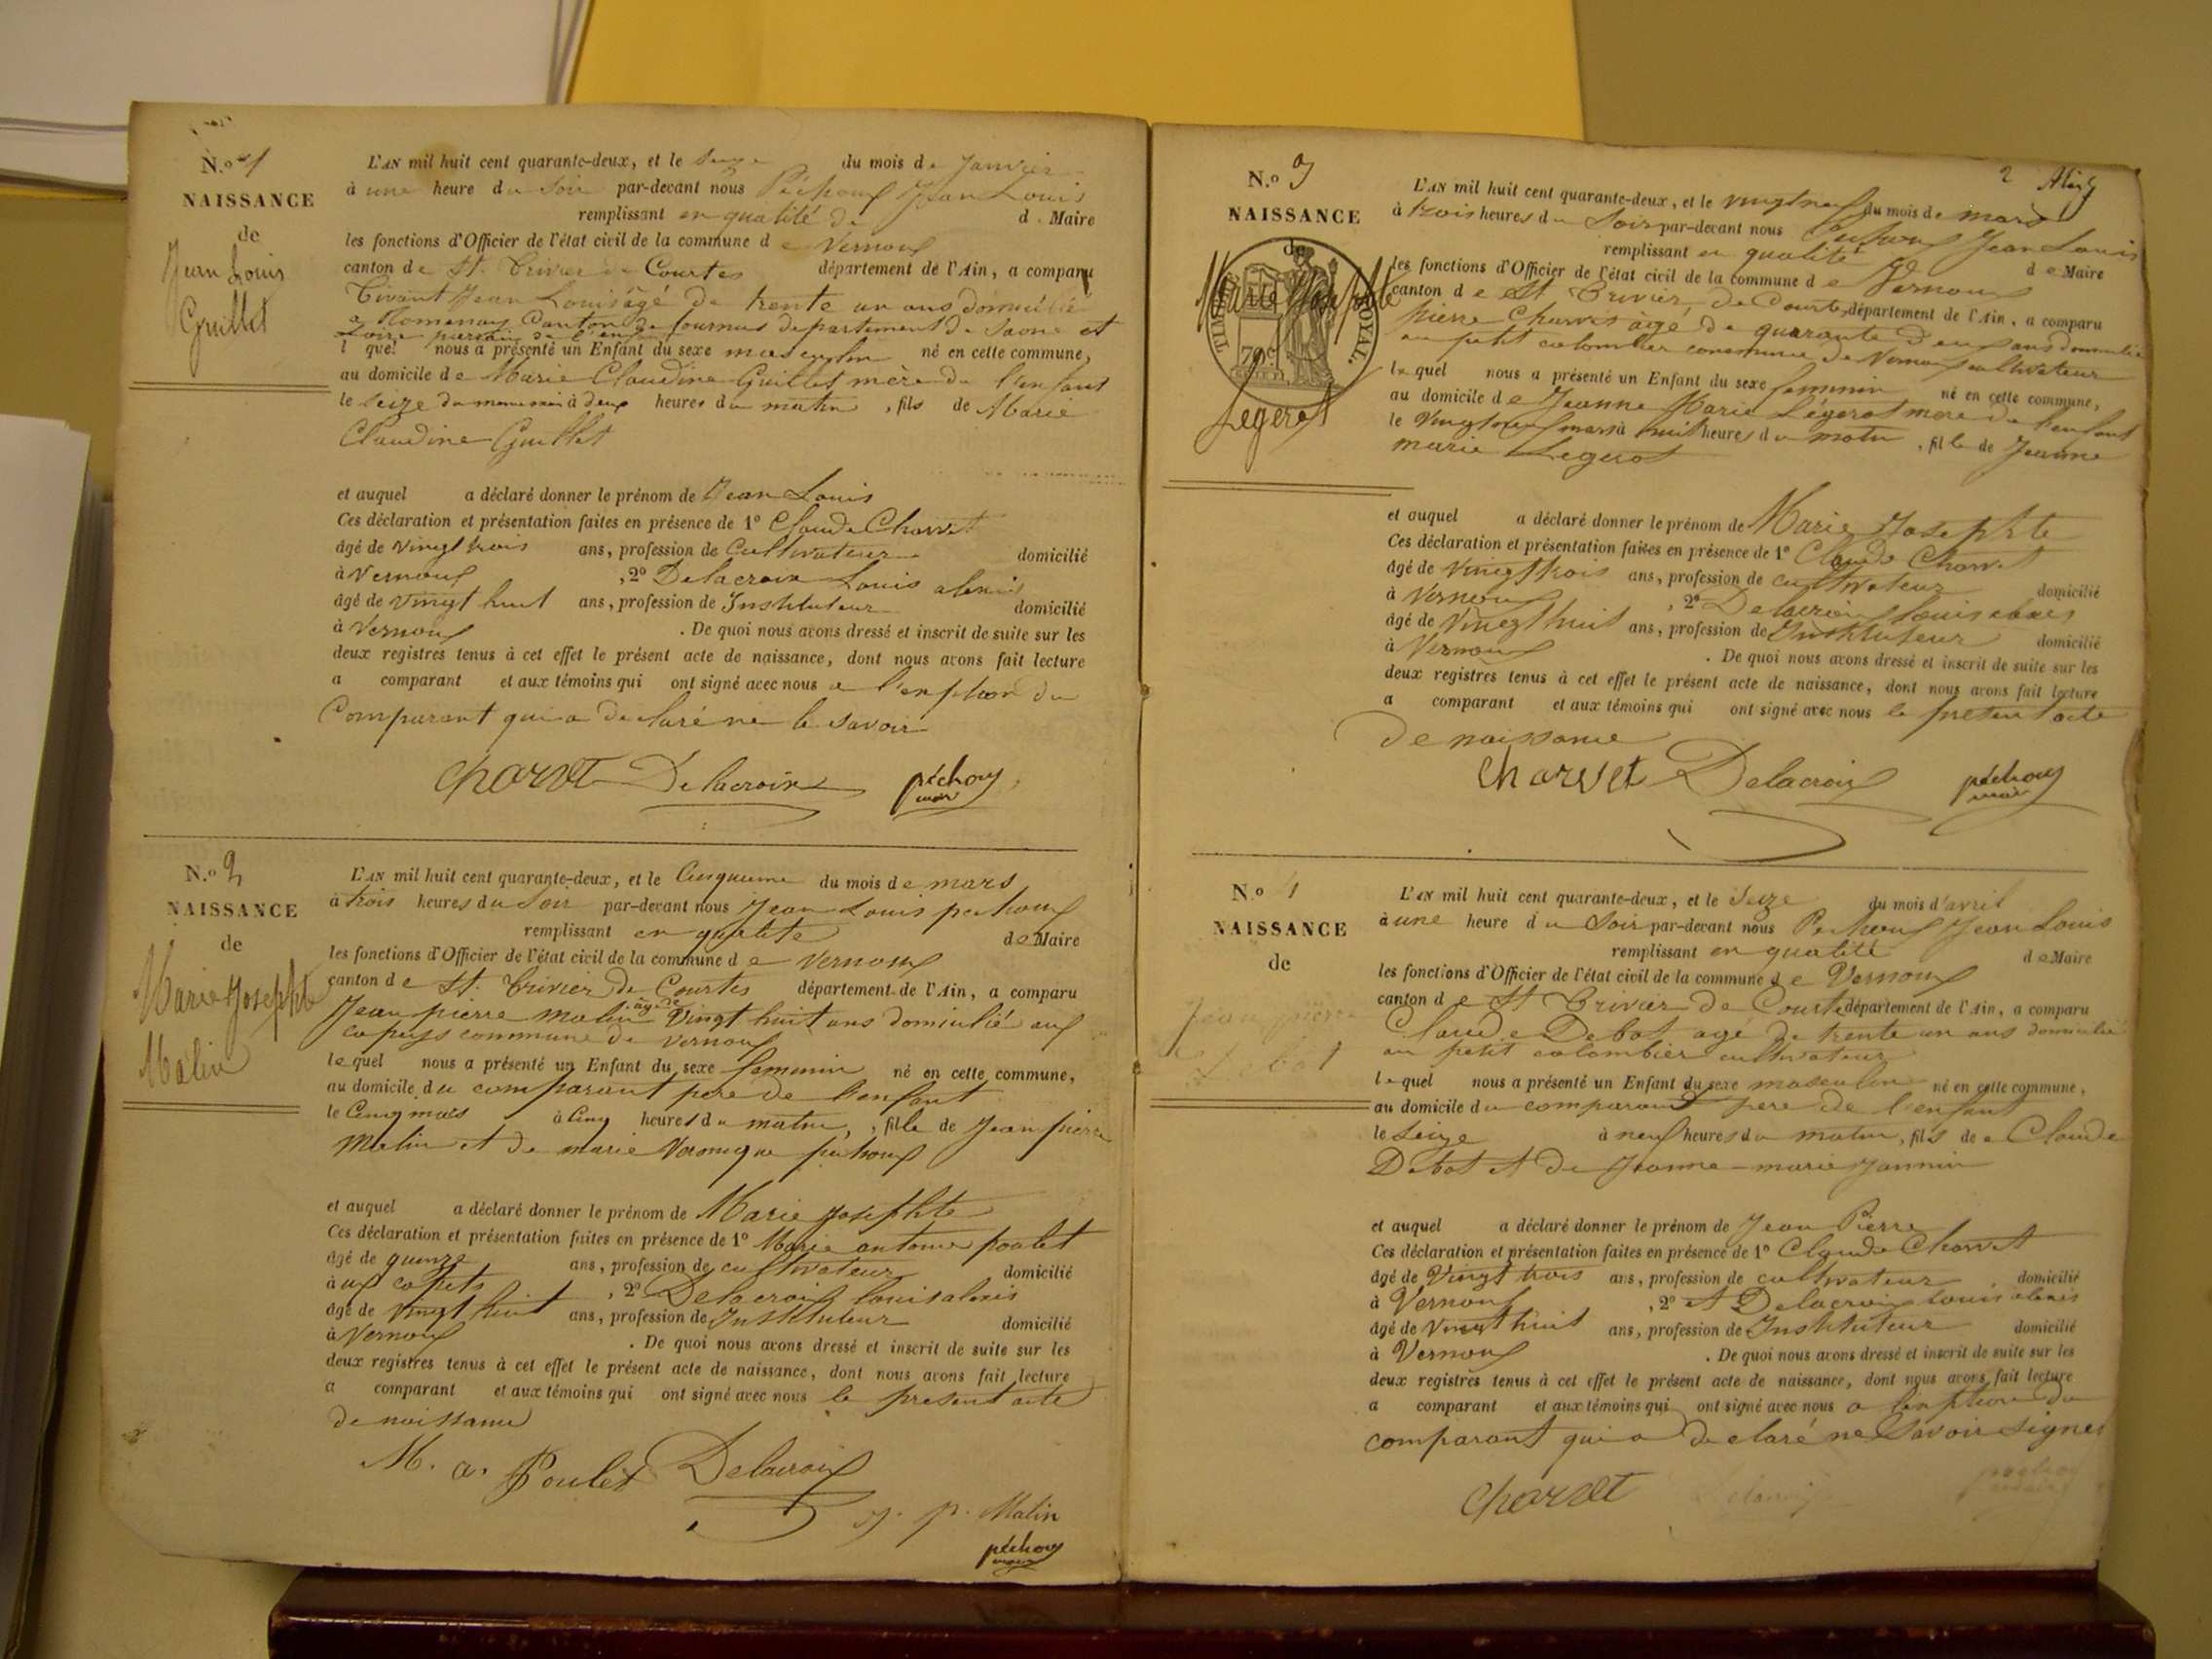 N.o 1
NAISSANCE
de
Jean Louis
Guillet
L'AN mil huit cent quarante-deux, et le seize du mois de Janvier
à une heure du Soir par-devant nous Péchoux Jean Louis
remplissant en qualité de d. Maire
les fonctions d'Officier de l'état civil de la commune de Vernoux
canton de St. Trivier de Courtes département de l'Ain, a comparu
Tivant Jean Louis âgé de trente un ans domicilié
a Romenay Canton de Tournus departement de Saone et
Loire parrain de l'enfant
l quel nous a présenté un Enfant du sexe masculin né en cette commune,
au domicile de Marie Claudine Guillet mère de l'enfant
le seize du mois à deux heures du matin, fils de Marie
Claudine Guillet
et auquel a déclaré donner le prénom de Jean Louis
Ces déclaration et présentation faites en présence de 1º Claude Charvet
âgé de vingt trois ans, profession de Cultivateur domicilié
à Vernoux , 2º Delacroix Louis alexis
âgé de vingt huit ans, profession de Instituteur domicilié
à Vernoux . De quoi nous avons dressé et inscrit de suite sur les
deux registres tenus à cet effet le présent acte de naissance, dont nous avons fait lecture
a comparant et aux témoins qui ont signé avec nous a l'exption du
Comparant qui a declaré ne le savoir
Charvet Delacroix péchoux
maire
N.o 2
NAISSANCE
de
Marie Josephte
Malin
L'AN mil huit cent quarante-deux, et le Cinquieme du mois de mars
à trois heures du Soir par-devant nous Jean Louis pechoux
remplissant en qualité de Maire
les fonctions d'Officier de l'état civil de la commune de Vernoux
canton de St. Trivier de Courtes département de l'Ain, a comparu
Jean pierre Malin âgé de Vingt huit ans domicilié aux
copets commune de Vernoux
lequel nous a présenté un Enfant du sexe feminin né en cette commune,
au domicile du comparant pere de l'enfant
le Cinq mars à Cinq heures du matin, , fille de Jean pierre
Malin et de marie Veronique pechoux
et auquel a déclaré donner le prénom de Marie Josephte
Ces déclaration et présentation faites en présence de 1º Marie antoine poulet
âgé de quinze ans, profession de cultivateur domicilié
à ux copets , 2º Delacroix louis alexis
âgé de vingt huit ans, profession de Instituteur domicilié
à Vernoux . De quoi nous avons dressé et inscrit de suite sur les
deux registres tenus à cet effet le présent acte de naissance, dont nous avons fait lecture
a comparant et aux témoins qui ont signé avec nous le present acte
de naissance
M. a. Poulet Delacroix
J. p. Malin
péchoux
maire
2
N.o 3
NAISSANCE
de
Marie Josephte
TIMBRE ROYAL.
70c
Legerot
L'AN mil huit cent quarante-deux, et le vingt neuf du mois de mars
à trois heures du Soir par-devant nous Pechoux Jean Louis
remplissant en qualité de Maire
les fonctions d'Officier de l'état civil de la commune de Vernoux
canton de St Trivier de Courtes département de l'Ain, a comparu
pierre Charvet âgé de quarante deux ans domicilié
au petit colombier commune de Vernoux cultivateur
lequel nous a présenté un Enfant du sexe feminin né en cette commune,
au domicile de Jeanne Marie Légerot mere de l'enfant
le Vingt neuf mars à huit heures du matin , fille de Jeanne
marie Legerot
et auquel a déclaré donner le prénom de Marie Josephte
Ces déclaration et présentation faites en présence de 1º Claude Charvet
âgé de vingt trois ans, profession de cultivateur domicilié
à Vernoux , 2º Delacroix louis alexis
âgé de Vingt huit ans, profession de Instituteur domicilié
à Vernoux . De quoi nous avons dressé et inscrit de suite sur les
deux registres tenus à cet effet le présent acte de naissance, dont nous avons fait lecture
a comparant et aux témoins qui ont signé avec nous le present acte
de naissance
Charvet Delacroix péchoux
maire
N.o 4
NAISSANCE
de
Jean pierre
Debot
L'AN mil huit cent quarante-deux, et le Seize du mois d'avril
à une heure du Soir par-devant nous Pechoux Jean Louis
remplissant en qualité de Maire
les fonctions d'Officier de l'état civil de la commune de Vernoux
canton de St Trivier de Courtes département de l'Ain, a comparu
Claude Debot age de trente un ans domicilié
au petit colombier cultivateur
lequel nous a présenté un Enfant du sexe masculin né en cette commune,
au domicile du comparant pere de l'enfant
le Seize à neuf heures du matin, fils de Claude
Debot et de Jeanne-marie Jannin
et auquel a déclaré donner le prénom de Jean Pierre
Ces déclaration et présentation faites en présence de 1º Claude Charvet
âgé de Vingt trois ans, profession de cultivateur domicilié
à Vernoux , 2º et Delacroix louis alexis
âgé de vingt huit ans, profession de Instituteur domicilié
à Vernoux . De quoi nous avons dressé et inscrit de suite sur les
deux registres tenus à cet effet le présent acte de naissance, dont nous avons fait lecture
a comparant et aux témoins qui ont signé avec nous a l'exption du
comparant qui a declaré ne Savoir signer
Charvet Delacroix péchoux